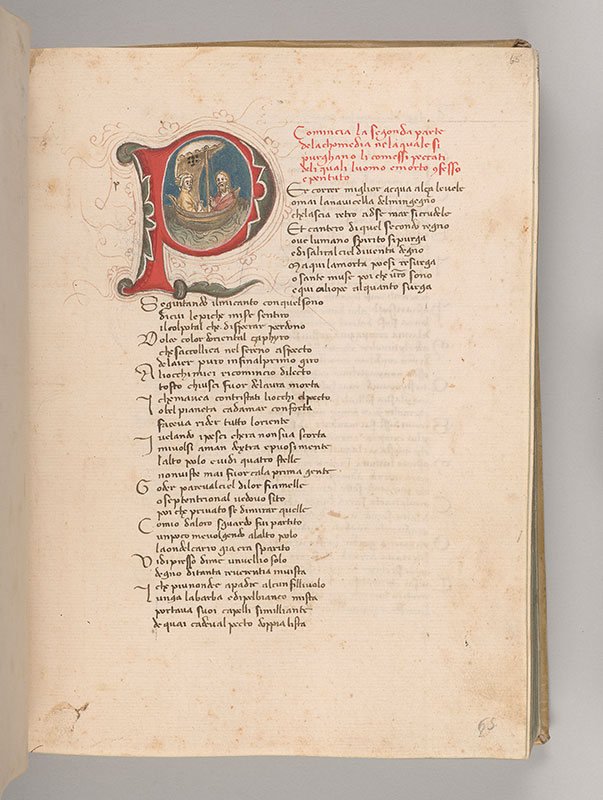 65
Comincia la segonda parte
dela chomedia nela quale si
purghano li comessi peccati
deli quali luomo e morto 9fesso
e pentuto
Per correr miglior acqua alça le vele
omai la navicella del mingegno
che lascia retro adse mar si crudele
Et cantero di quel secondo regno
ove lumano spirito si purga
e di salir al ciel diventa degno
Ma qui la morta poesi resurga
o sante muse poi che vostro sono
e qui caliope alquanto surga
Seguitando il mio canto con quel sono
di cui le piche misere sentiro
il colpo tal che disperar perdono
Dolce color doriental çaphyro
che saccollica nel sereno aspecto
de laier puro infinal primo giro
A li occhi miei ricomincio dilecto
tosto chiusci fuor de laura morta
che mavea contristati li occhi el pecto
Lo bel pianeta cadamar conforta
faceva rider tutto loriente
velando i pesci chera non sua scorta
I mi volsi a man dextra e puosi mente
lalto polo e vidi quatro stelle
non viste mai fuor cala prima gente
Goder pareval ciel di lor fiamelle
o septentrional vedovo sito
poi che privato se di mirar quelle
Como da loro sguardo fui partito
un poco me volgendo alalto polo
la onde l carro gia era sparito
Vidi presso di me un vechio solo
degno di tanta reverentia in vista
che piu non de a padre alcun fillivolo
Lunga la barba e di pel bianco mista
portava suoi capelli simigliante
de quai cadeval pecto doppia lista
65